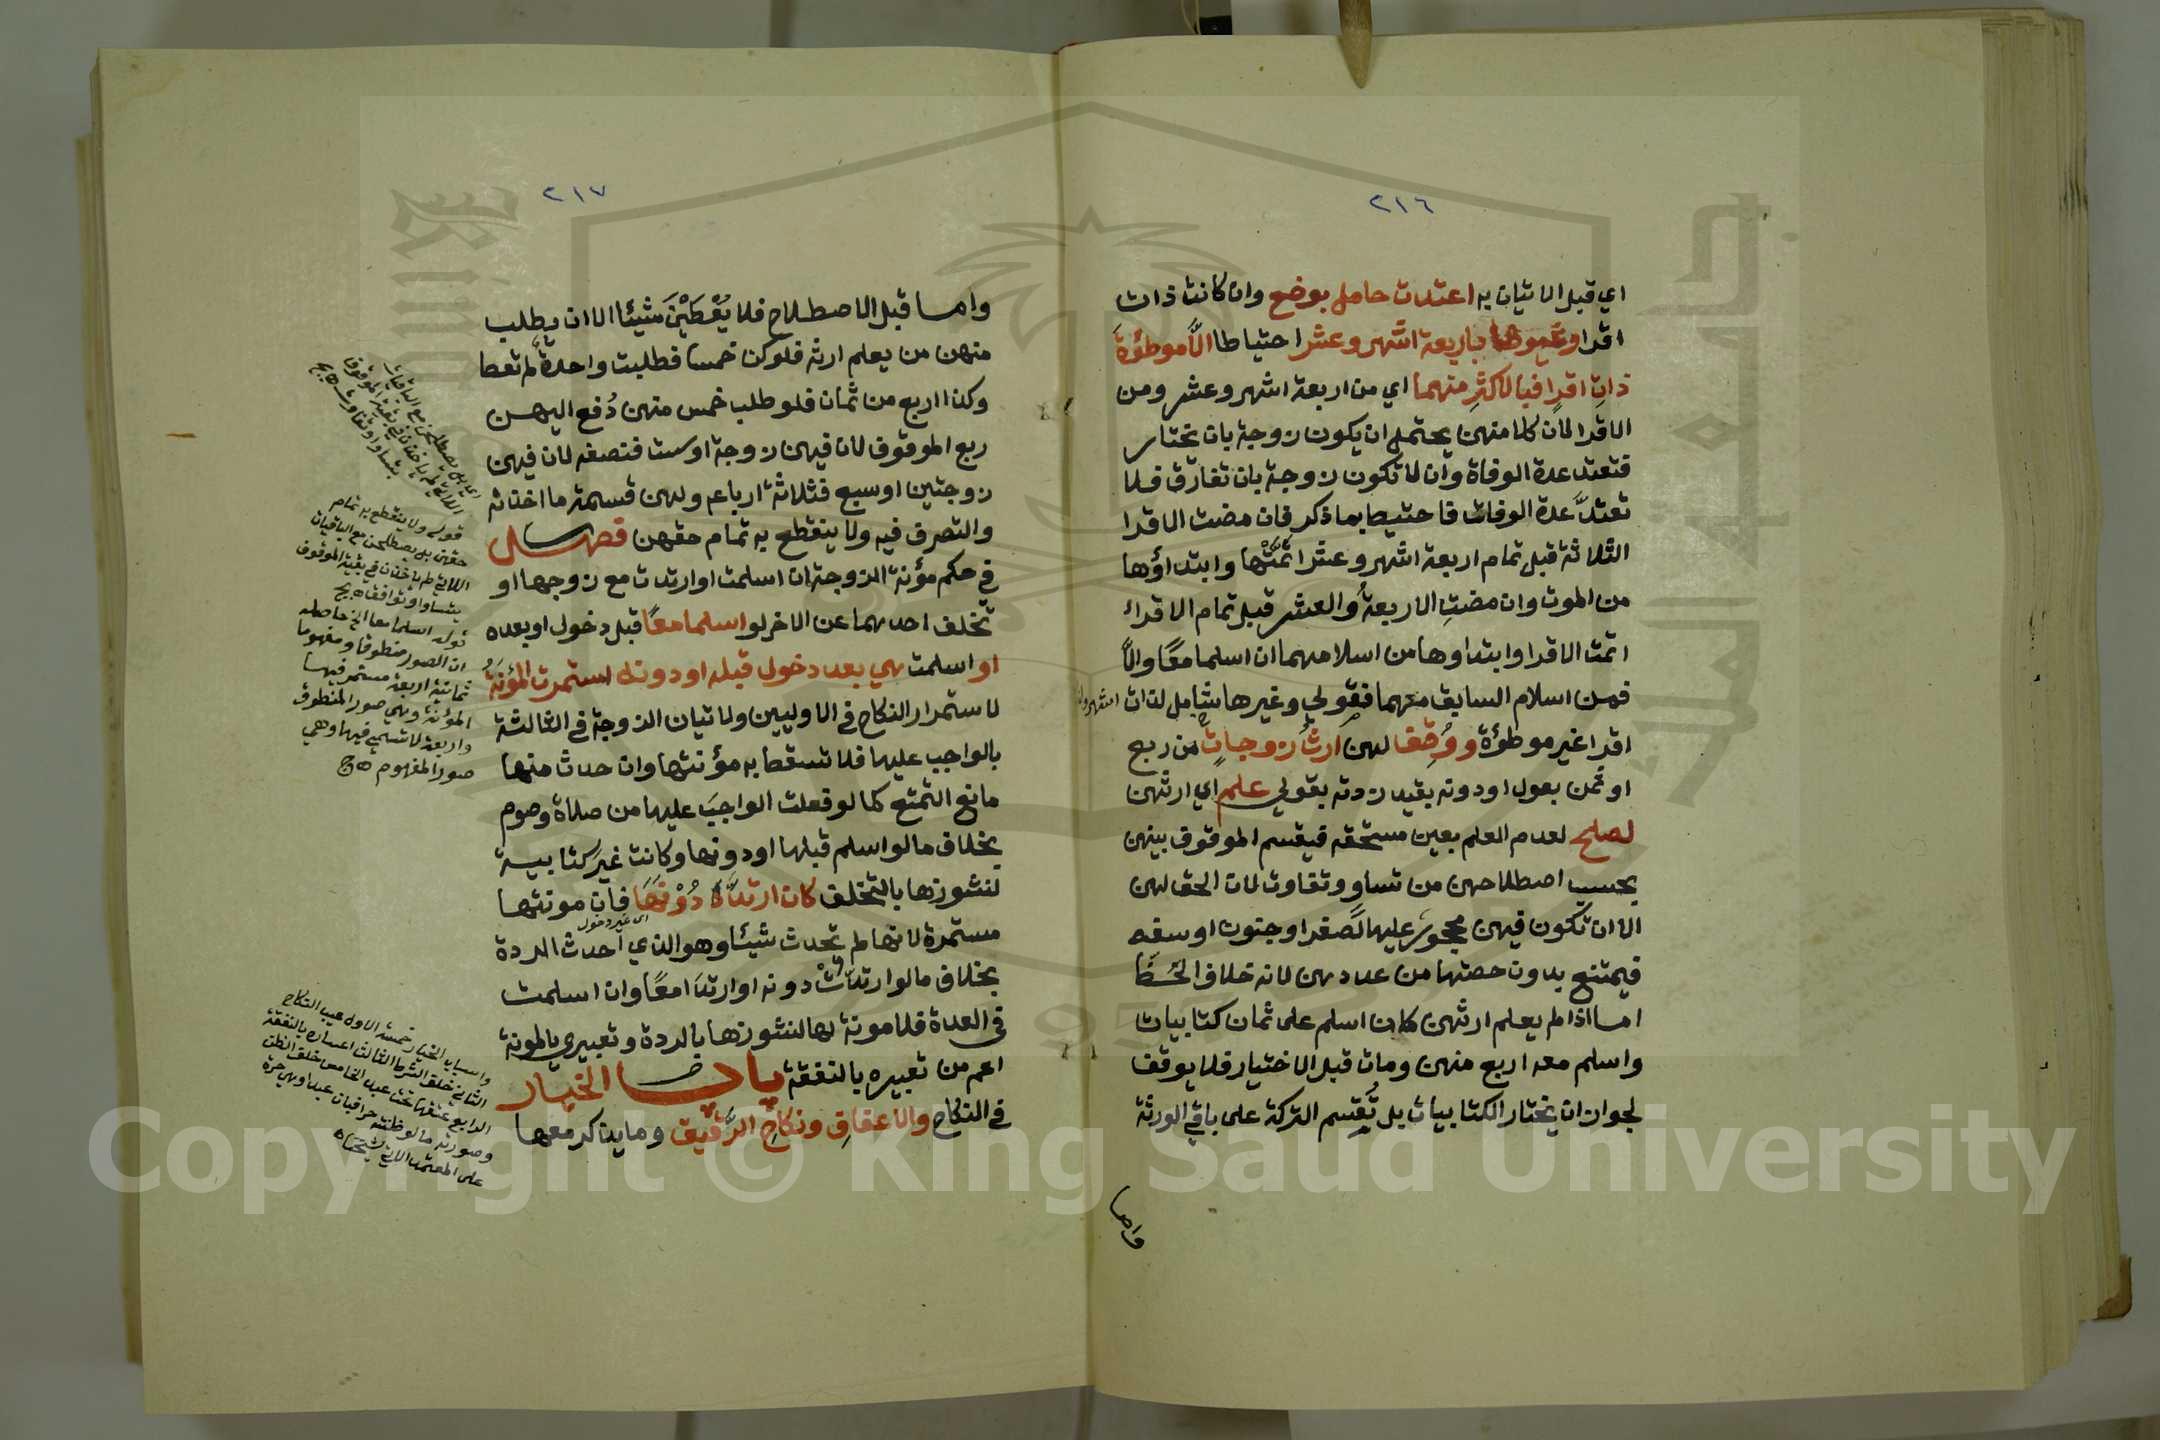 ٢١٦
اي قبل الاتيان به اعتدت حامل بوضع وان كانت ذات
اقرا وغيرها باربعة اشهر وعشر احتياطا الا موطؤة
ذات اقرا فبالاكثر منهما اي من اربعة اشهر وعشر ومن
الاقرا لان كلا منهن يحتمل ان يكون زوجة بان تختار
فتعتد عدة الوفاة وان لا تكون زوجة بان تفارق فلا
تعتد عدة الوفات فاحتيط بما ذكر فان مضت الاقرا
الثلاثة قبل تمام اربعة اشهر وعشر اتمتها وابتداؤها
من الموت وان مضت الاربعة والعشر قبل تمام الاقراء
اتمت الاقرا وابتداوها من اسلامهما ان اسلما معًا والا
فمن اسلام السابق منهما فقولي وغيرها شامل لذات اشهر ولذات
اقرا غير موطؤة ووقف لهن ارث زوجات من ربع
او ثمن بعول او دونه بقيد زدته بقولي علم اي ارثهن
لصلح لعدم العلم بعين مستحقه فيقسم الموقوف بينهن
بحسب اصطلاحهن من تساو وتفاوت لان الحق لهن
الا ان تكون فيهن محجور عليها لصغر او جنون او سفه
فيمتنع بدون حصتها من عددهن لانه خلاف الحظ
اما اذا لم يعلم ارثهن كان اسلم على ثمان كتابيات
واسلم معه اربع منهن ومات قبل الاختيار فلا يوقف
لجواز ان يختار الكتابيات بل تقسم التركة على باقي الورثة
واما
٢١٧
واما قبل الاصطلاح فلا يُعْطَيْنَ شيئا الا ان يطلب
منهن من يعلم ارثه فلو كن خمسا فطلبت واحدة لم تعط
وكذا اربع من ثمان فلو طلب خمس منهن دُفع اليهن
ربع الموقوف لان فيهن زوجة او ست فنصفه لان فيهن
زوجتين او سبع فثلاثة ارباع ولهن قسمة ما اخذنه
والتصرف فيه ولا ينقطع به تمام حقهن فصل
في حكم مؤنة الزوجة ان اسلمت او ارتدت مع زوجها او
تخلف احدهما عن الاخر لو اسلما معًا قبل دخول او بعده
او اسلمت هي بعد دخول قبله او دونه استمرت المؤنة
لاستمرار النكاح في الاوليين ولاتيان الزوجة في الثالثة
بالواجب عليها فلا تسقط به مؤنتها وان حدث منها
مانع التمتع كما لو فعلت الواجب عليها من صلاة وصوم
بخلاف ما لو اسلم قبلها او دونها وكانت غير كتابية
لنشوزها بالتخلف كان ارتد دُوْنَهَا فان مونتها
اي بغير دخول
مستمرة لانها لم تحدث شيئا وهو الذي احدث الردة
بخلاف ما لو ارتدت دونه او ارتدا معًا وان اسلمت
في العدة فلا مونة لها لنشوزها بالردة وتعبيري بالمونة
اعم من تعبيره بالنفقة باب الخيار
في النكاح والاعفاف ونكاح الرقيق وما يذكر معها
اي بل يصطلحن مع الباقيات
قوله ولا ينقطع به تمام
حقهن بل يصطلحن مع الباقيات
اللاتي لم ياخذن في بقية الموقوف
قوله اسلما معا الخ حاصله
ان الصور منطوقا ومفهوما
ثمانية اربعة مستمر فيها
المؤنة وهي صور المنطوق
واربعة لا تستمر فيها وهي
صور المفهوم
واسباب الخيار خمسة الاول عيب النكاح
الثاني خلف الشرط الثالث اعساره بالنفقة
الرابع عتقها تحت عبد الخامس خلف الظن